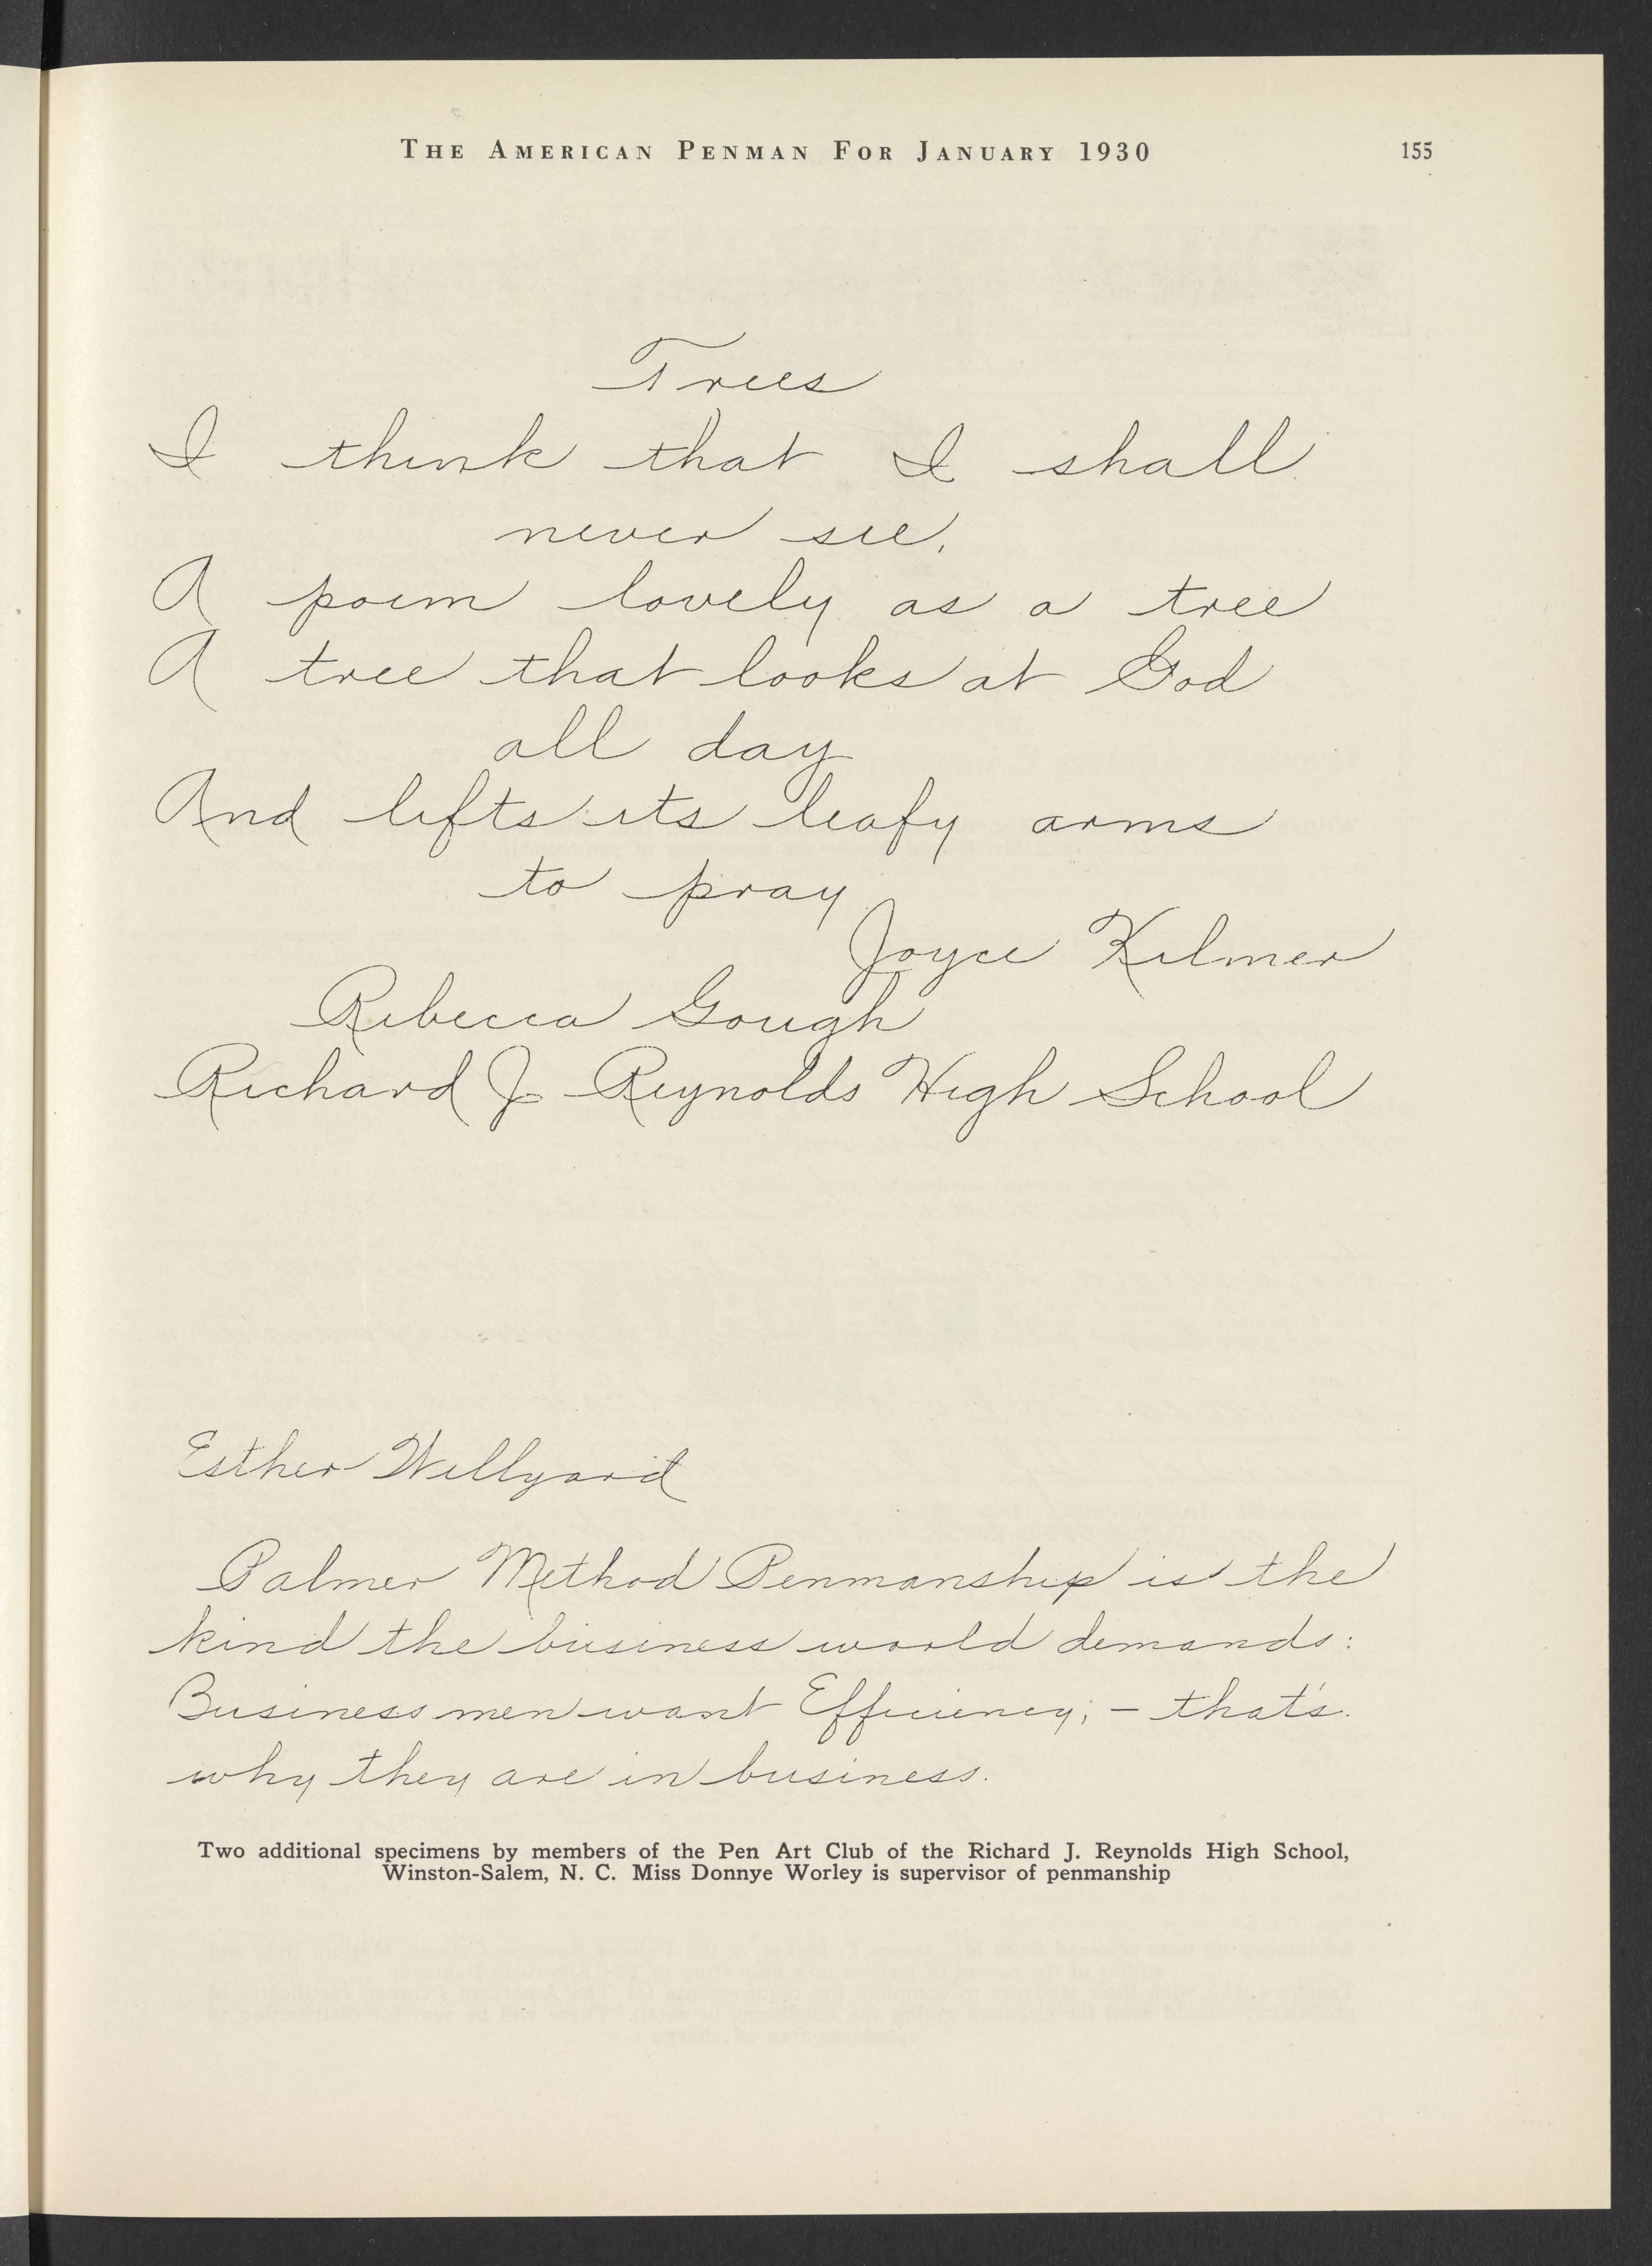 THE AMERICAN PENMAN FOR JANUARY 1930 155
Trees
I think that I shall
never see,
A poem lovely as a tree
A tree that looks at God
all day
And lifts its leafy arms
to pray
Joyce Kilmer
Rebecca Gough
Richard J. Reynolds High School
Esther Willyard
Palmer Method Penmanship is the
kind the business world demands:
Business men want Efficiency; – that's
why they are in business.
Two additional specimens by members of the Pen Art Club of the Richard J. Reynolds High School,
Winston-Salem, N. C. Miss Donnye Worley is supervisor of penmanship